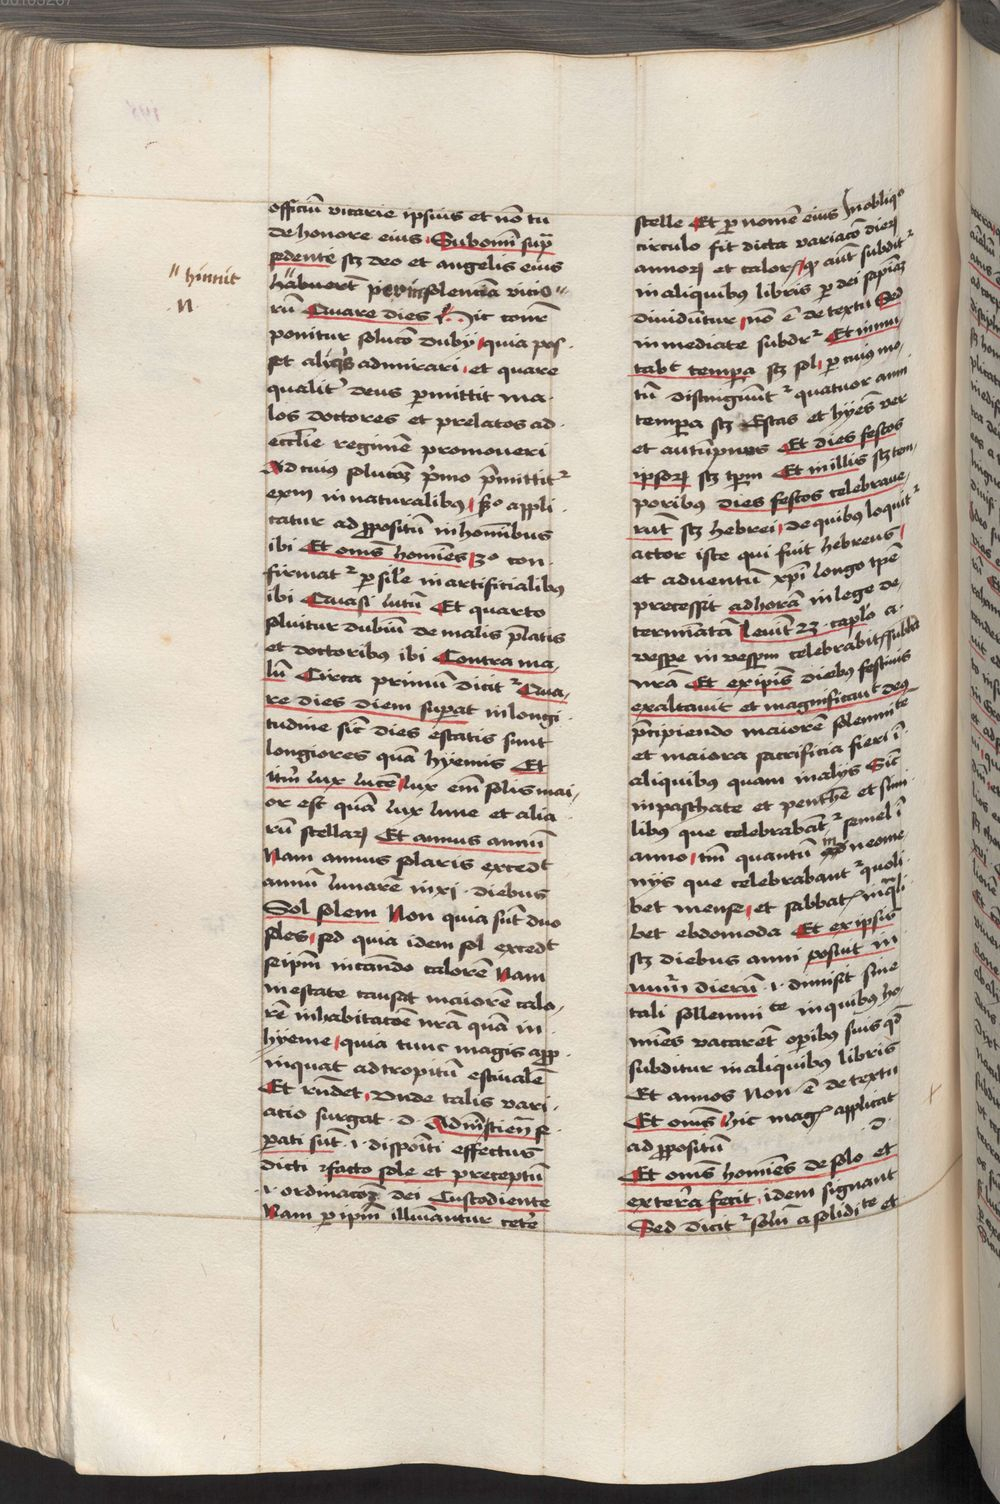 hinnit
n
officiū vicarie ipsius et nō tu
de honore eius Sub omī sup̄
sedente scz deo et angelis eius
habuerēt per insolencia vicio
rū Quare dies Hic conse
ponitur solucō dubij quia pos
set aliqs admirari et quare
qualit̉ deus ꝑmittit ma
los doctores et prelatos ad
eccl̄ie regimē promoueri
Ad cuius solucōz p̄mo p̄mittit̉
exm̄ in naturalibꝯ sc̄do appli
catur ad ꝓpositū in hominibus
ibi Et oms̄ homīes 3o con
firmat̉ ꝑ sil̄e in artificialibꝯ
ibi Quasi lutū Et quarto
soluitur dubiū de malis p̄latis
et doctoribꝯ ibi Contra ma
lū Circa primū dicit̉ Qua
re dies diem supat in longi
tudine sic̄ dies estatis sunt
longiores quā hyemis Et
itm̄ lux lucē lux em̄ solis mai
or est quā lux lune et alia
rū stellaꝝ Et annus annū
Nam annus solaris excedt
annū lunarē in xi diebus
Sol solem Non quia sūt duo
soles sed quia idem sol excedt
seipm̄ in cāndo calorē Nam
in estate causat maiorē calo
rē in habitacōe nr̄a quā in
hyeme quia tunc magis app̄
inquat ad tropicū estiualē
Et rn̄det vnde talis vari
acio surgat d Adn̄i sciēn se
pati sūt i dispoīti effectus
dicti facto sole et preceptū
i ordinacōꝫ dei Custodiente
Nam ꝑ ipm̄ illuīantur cet̄e
stelle Et ꝑ nomē eius in obliqo
circulo fit dicta variacō dieꝝ
annoꝝ et caloꝝ qꝫ aūt subdit̉
in aliquibꝯ libris ꝑ dei sapiāz
diuiduntur nō ē de textu Sed
inmediate subdr̉ Et inmu
tabt tempa scz sol ꝑ cuius mo
tū distinguūt̉ quatuor anni
tempa scz Estas et hyēs ver
et autūpnus Et dies festos
ipsoꝝ scz tpm̄ Et in illis scz tem
poribus dies festos celebraue
rūt scz hebrei de quibus loquit̉
actor iste qui fuit hebreus
et aduentū xp̄i longo tp̄e
precessit ad horā in lege de
terminatā Leuit 23 caplo a
vespe in vespm̄ celebrabit sabba
nr̄a Et ex ipis diebus festinis
exaltauit et magnificaut deus
p̄cipiendo maiorē solemnite
et maiora sacrificia fieri ī
aliquibꝯ quam in alijs Sic̄
in paschate et penthē et simi
libꝯ que celebrabāt̉ semel ī
anno tm̄ quantū in neome
nijs que celebrabant̉ quoli
bet mense et sabbat in q̄li
bet ebdomoda Et ex ipsis
scz diebus anni posiut in
nūm̄ dierū i dimisit sine
tali sollemni te in quibꝯ ho
mīes vacarēt opibus suis qd̄
subditur in aliquibus libris
Et annos Non ē de textu
Et omīs hic mag applicat
ad ꝓpositū d
Et oms̄ homīes de solo et
ex terra fecit idem signant
Sed dicit̉ solū a solidi te et